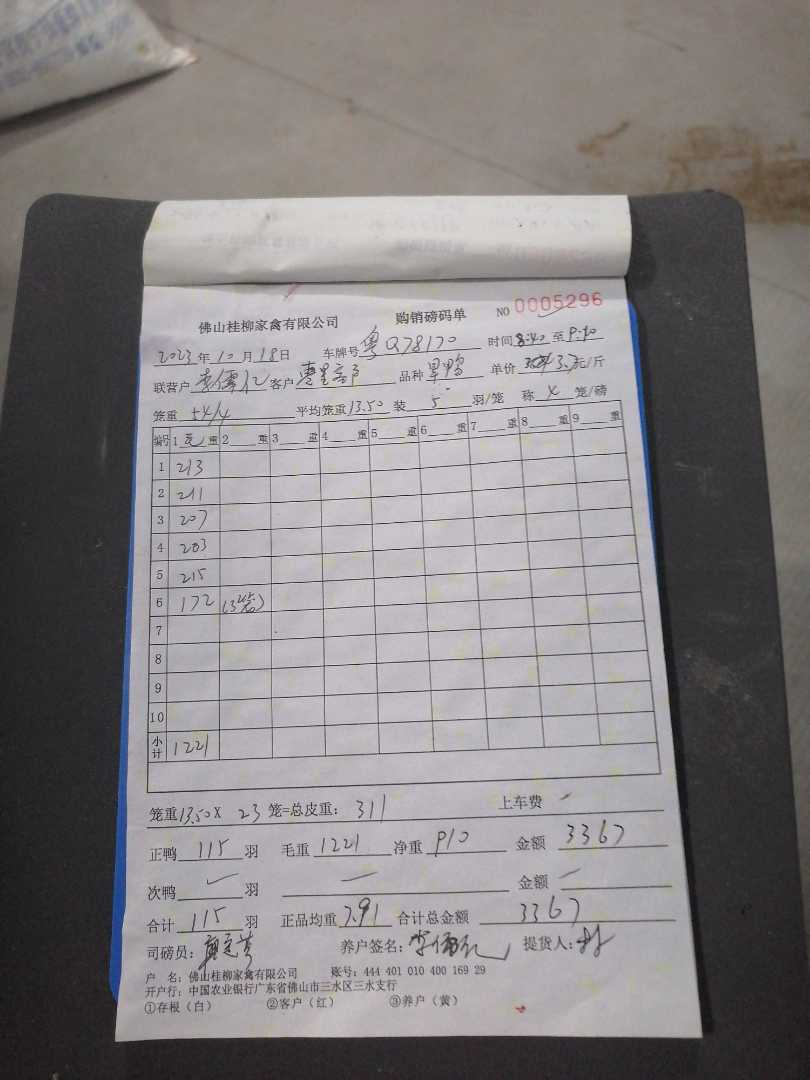 佛山桂柳家禽有限公司 购销磅码单 NO 0005296
2023年10月18日 车牌号 粤Q78170 时间 8:40 至 9:10
联营户 李儒亿 客户 品种 旱鸭 单价 3.7元/斤
笼重 54/4 平均笼重13.50 装 5 羽/笼 称 4 笼/磅
编号 1 毛 重 2 重 3 重 4 重 5 重 6 重 7 重 8 重 9 重
1 213
2 211
3 207
4 203
5 215
6 172 (3笼)
7
8
9
10
小计 1221
笼重13.50 X 23 笼=总皮重: 311 上车费
正鸭 115 羽 毛重 1221 净重 910 金额 3367
次鸭 羽 金额
合计 115 羽 正品均重 7.91 合计总金额 3367
司磅员: 养户签名: 李儒亿 提货人:
户 名: 佛山桂柳家禽有限公司 账号: 444 401 010 400 169 29
开户行: 中国农业银行广东省佛山市三水区三水支行
①存根（白） ②客户（红） ③养户（黄）